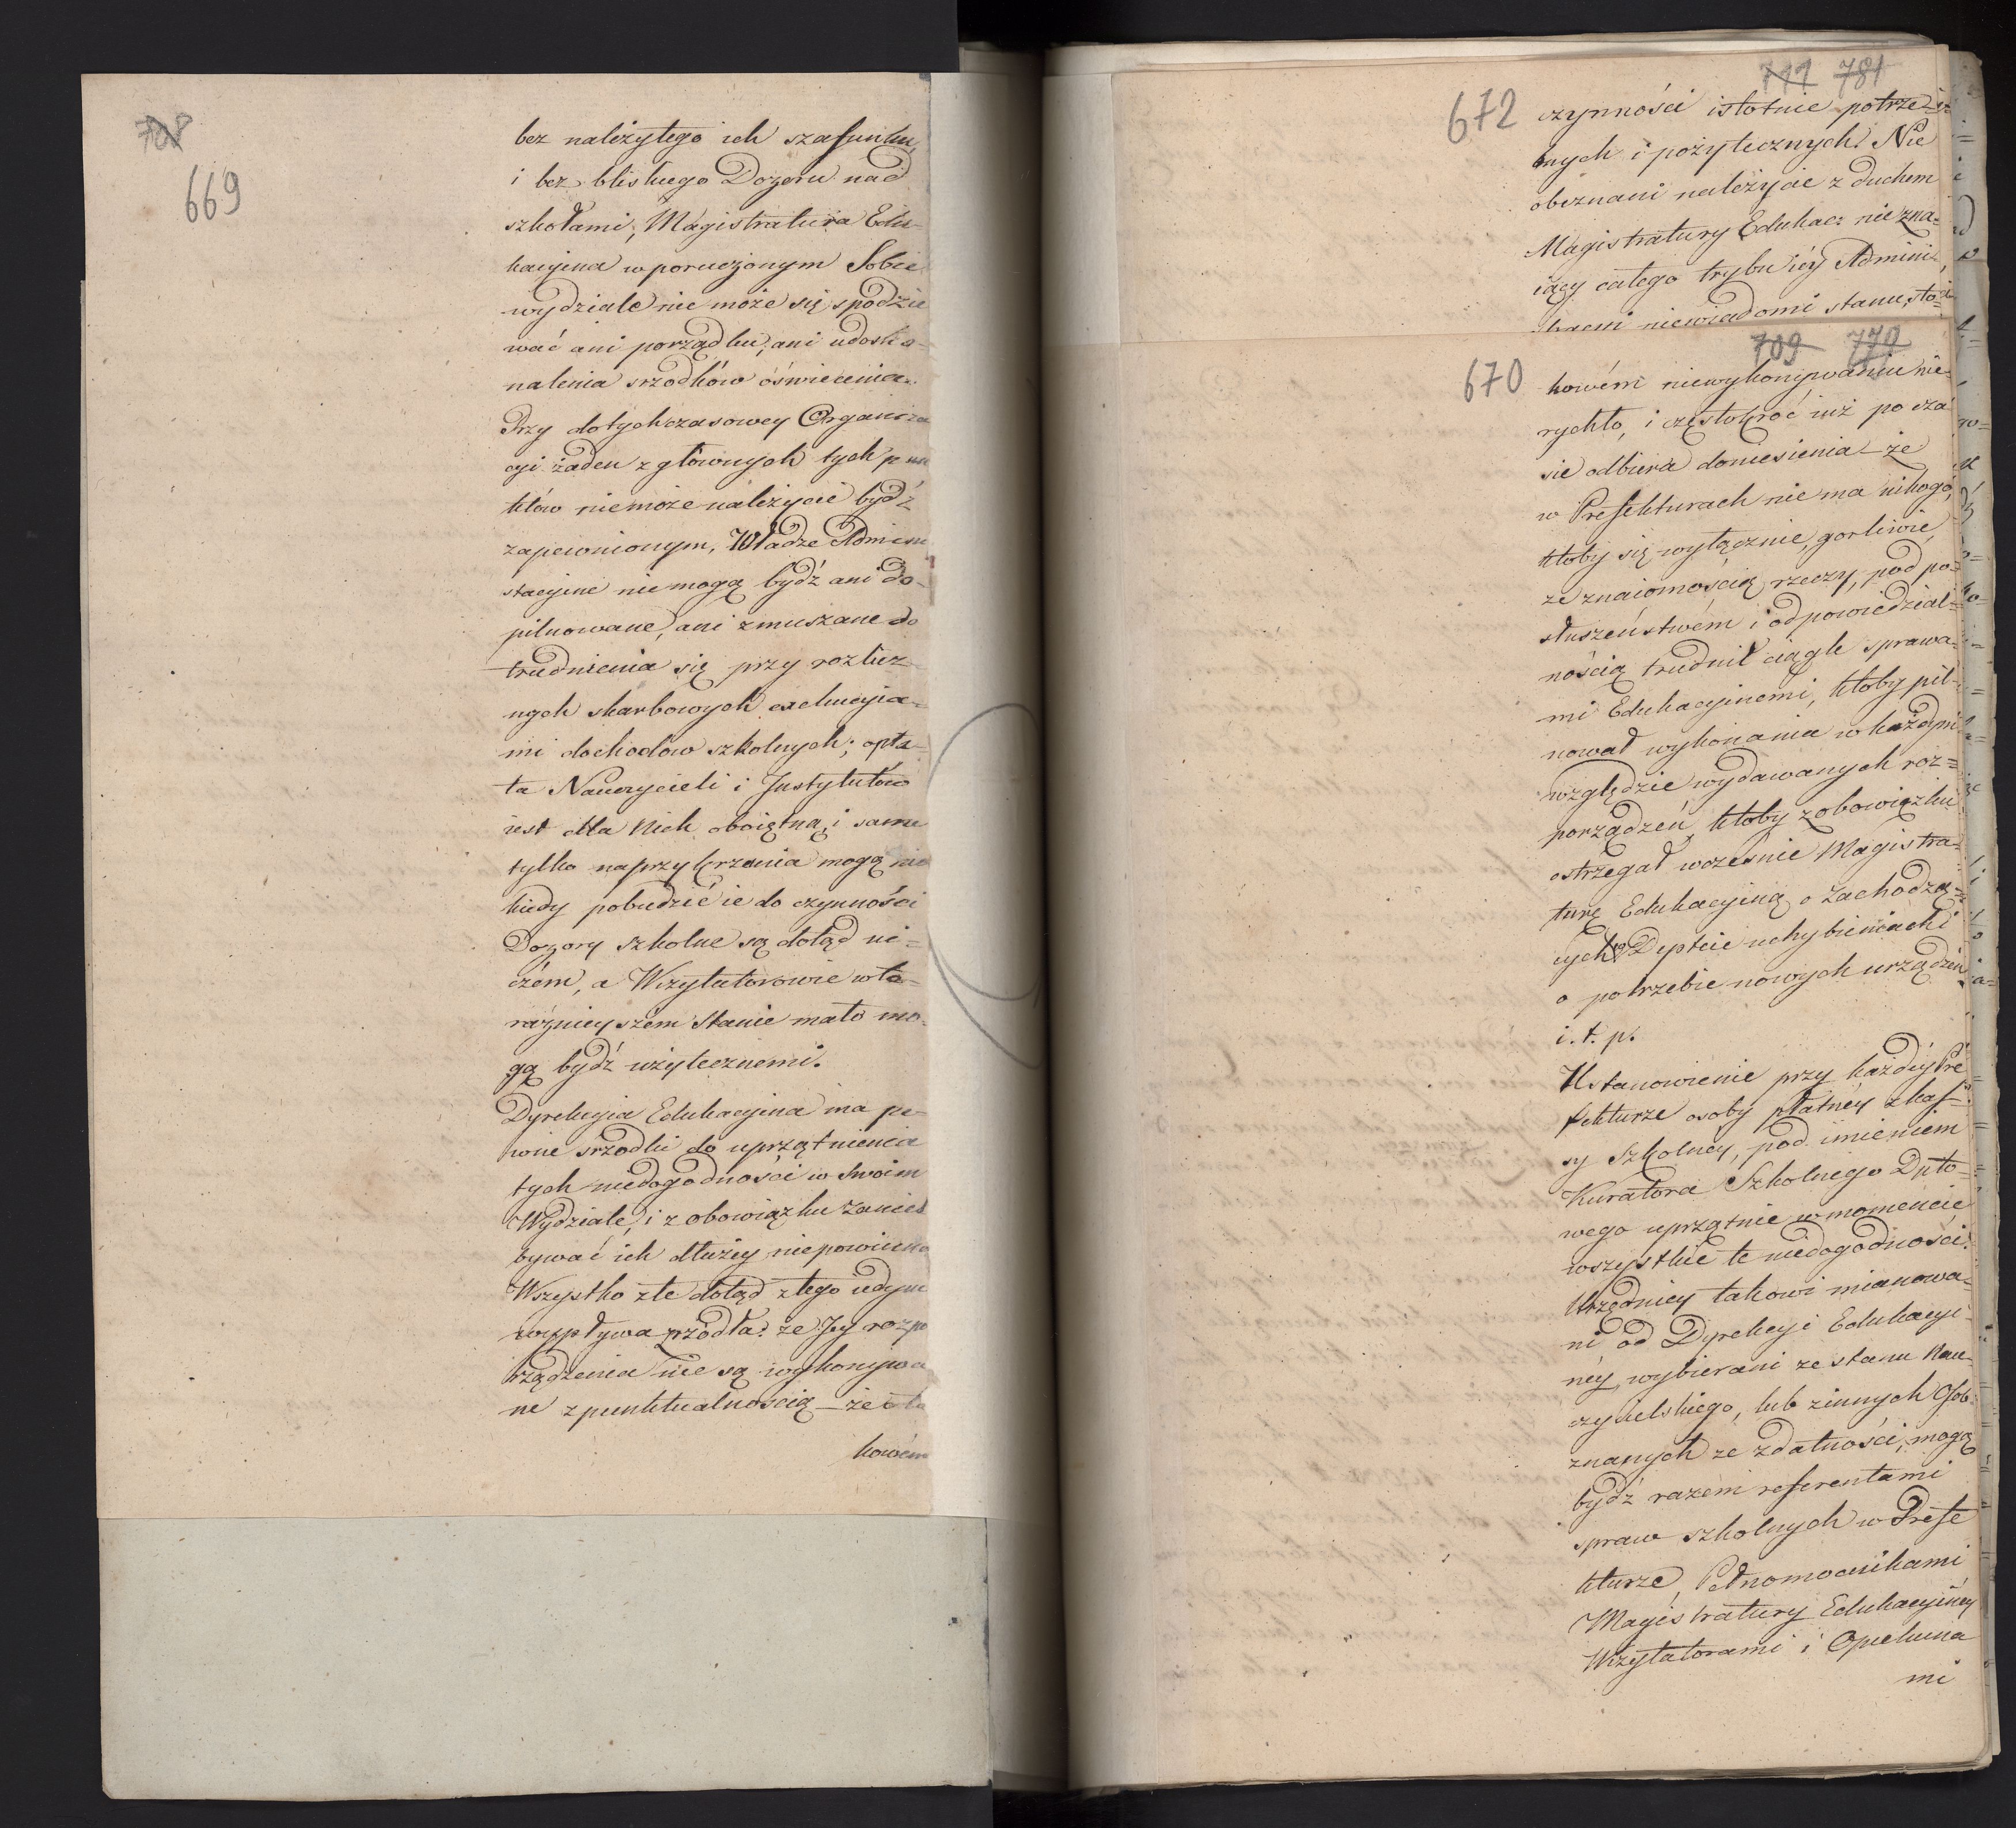 708
669
bez należytego ich szafunku,
i bez bliskiego Dozoru nad
szkołami, Magistratura Edu-
kacyina w poruczonym Sobie
wydziale nie może się spodzie
wać ani porządku, ani udosko-
nalenia srzodków oświecenia.
Przy dotychczasowey Organiza
cyi żaden z głównych tych pun
któw niemoże należycie bydź
zapewnionym, Władze Admini
stacyine niemogą bydź ani do-
pilnowane, ani zmuszane do
trudnienia się przy rozlicz
nych skarbowych exekucyia=
mi dochodów szkolnych; opła-
ta Nauczycieli i Instytutów
iest dla Nich oboiętną, i same
tylko naprzykrzania mogą nie
kiedy pobudzić ie do czynności
Dozory szkolne są dotąd ni=
czém, a Wizytatorowie w te-
raźnieyszem stanie mało mo-
gą bydź użytecznemi.
Dyrekcyia Edukacyina ma pe-
wne srzodki do uprzątnienia
tych niedogodności w swoim
Wydziale, i z obowiązku zanied
bywać ich dłużey niepowinna
Wszystko złe dotąd z tego iedyni
wypływa zrzódła: że Jey rozpo
rządzenia nie są wykonywa
ne z punktualnością – że o ta
kowém
711 781
672
czynności istotnie potrze-
bnych i pożytecznych. Nie
obeznani należycie z duchem
Magistratury Edukac: nie zna=
iący całego trybu iéy Admini-
niewiadomi stanu, sto
709 779
670
kowém niewykonywaniu nie-
rychło, i częstokroć iuż po cza
sie odbiera doniesienia – że
w Prefekturach nie ma nikogo,
ktoby się wyłącznie, gorliwie,
ze znaiomością rzeczy, pod po-
słuszeństwém i odpowiedzial=
nością trudnił ciągle sprawa-
mi Edukacyinemi, ktoby pil-
nował wykonania w każdym
względzie wydawanych roz=
porządzeń, ktoby z obowiązku
ostrzegał wcześnie Magistra-
turę Edukacyiną o zachodzą-
cych w Deptcie uchybieniach i
o potrzebie nowych urządzeń
i. t. p.
Ustanowienie przy każdéy Pre
fekturze osoby płatnéy z kaſ-
sy Szkolney, pod imieniem
Kuratora Szkolnego Dpto-
wego uprzątnie w momencie
wszystkie te niedogodności.
Urzędnicy takowi mianowa-
ni od Dyrekcyi Edukacyi-
néy, wybierani ze stanu Nau-
czycielskiego, lub z innych Osob
znanych ze zdatności, mogą
bydź razem referentami
spraw szkolnych w Prefe
kturze, Pełnomocnikami
Magistratury Edukacyinéy
Wizytatorami i Opiekuna
mi